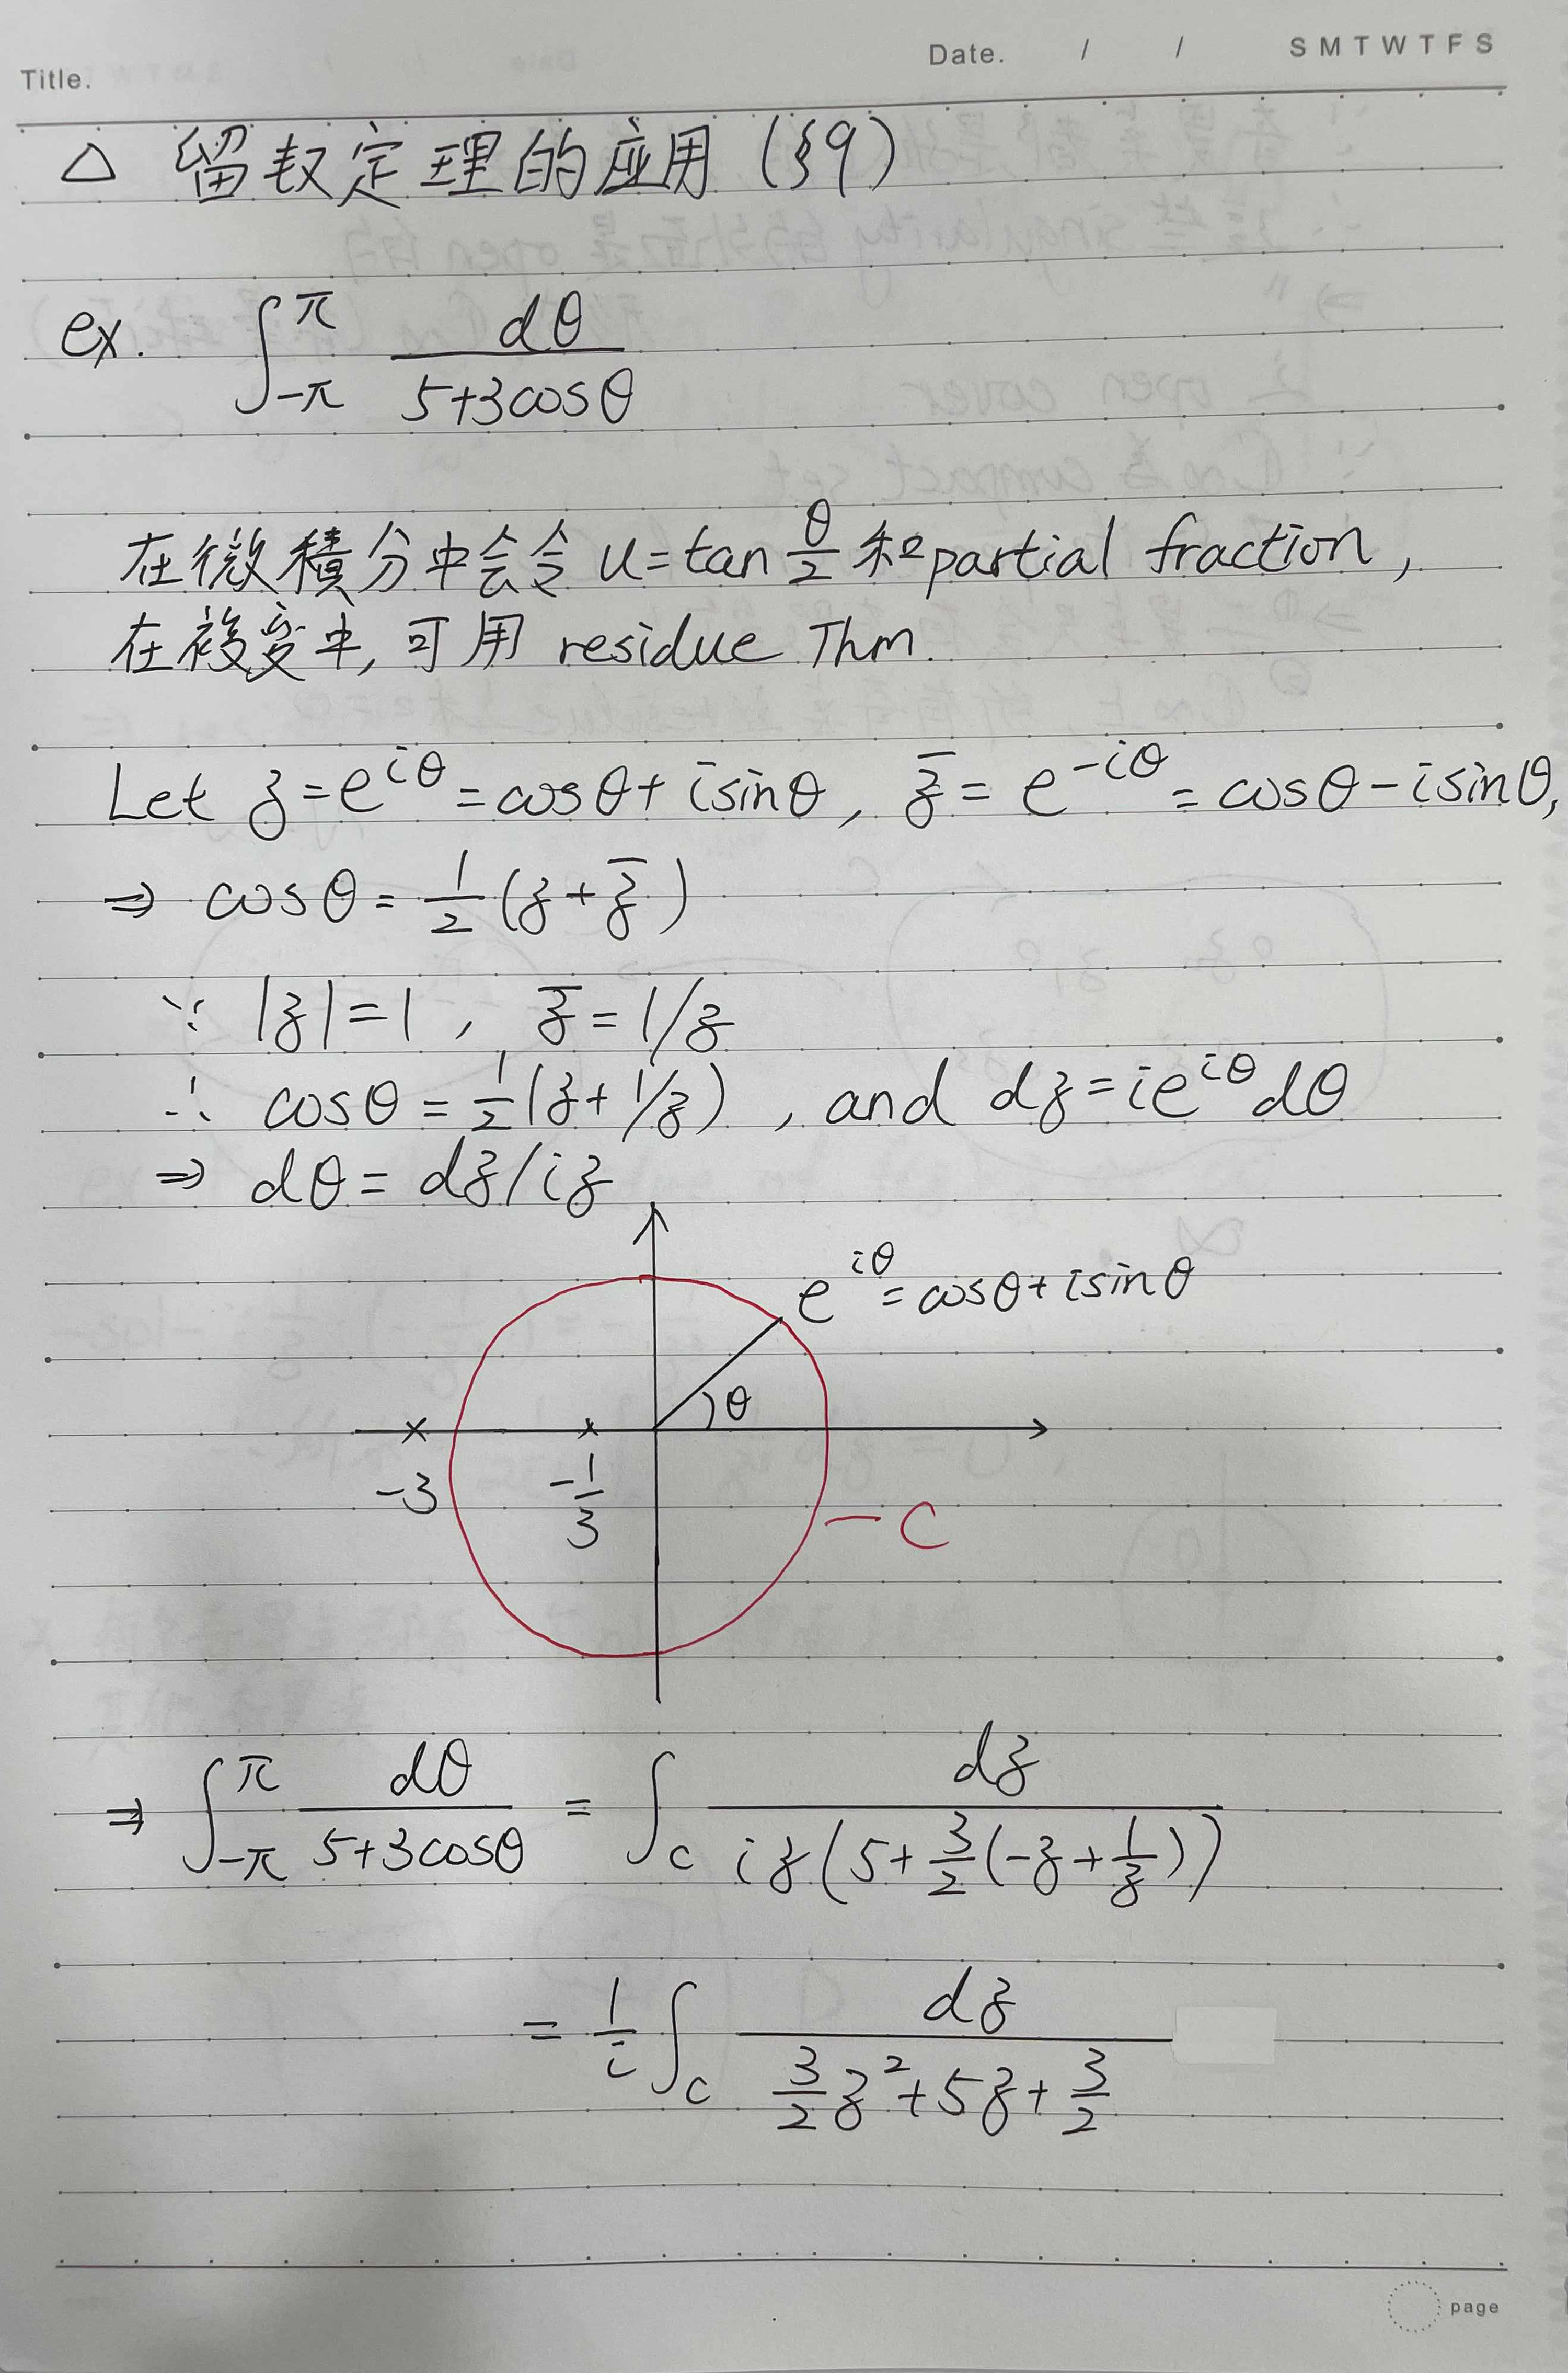 Title.
Date. / / S M T W T F S
△ 留数定理的应用 (§9)
ex. ∫_{-π}^{π} dθ / (5+3cosθ)
在微積分中会令 u=tan θ/2 和 partial fraction,
在複变中, 可用 residue Thm.
Let z = e^{iθ} = cosθ + i sinθ, z̄ = e^{-iθ} = cosθ - i sinθ,
⇒ cosθ = 1/2 (z + z̄)
∵ |z| = 1, z̄ = 1/z
∴ cosθ = 1/2 (z + 1/z), and dz = ie^{iθ} dθ
⇒ dθ = dz/iz
e^{iθ} = cosθ + i sinθ
θ
-3
-1/3
C
⇒ ∫_{-π}^{π} dθ / (5+3cosθ) = ∫_C dz / (iz(5 + 3/2(-z + 1/z)))
= 1/i ∫_C dz / (3/2 z² + 5z + 3/2)
page